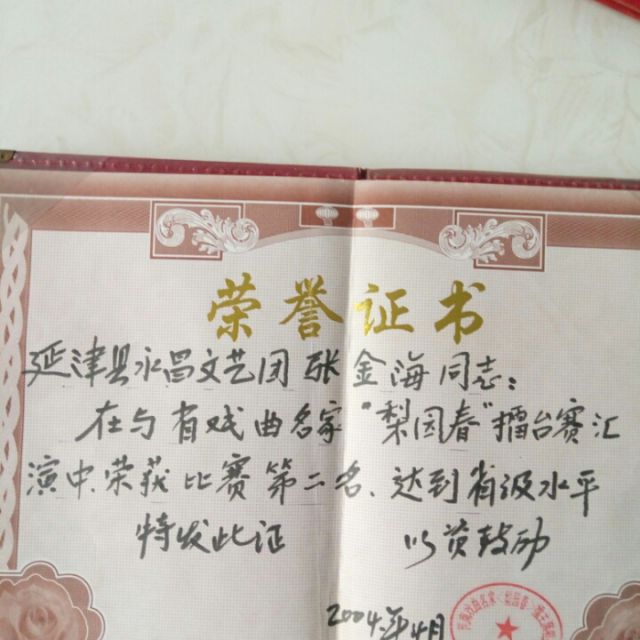 荣誉证书
延津县永昌文艺团张金海同志:
在与省戏曲名家"梨园春"擂台赛汇
演中荣获比赛第二名、达到省级水平
特发此证 以资鼓励
2004年4月